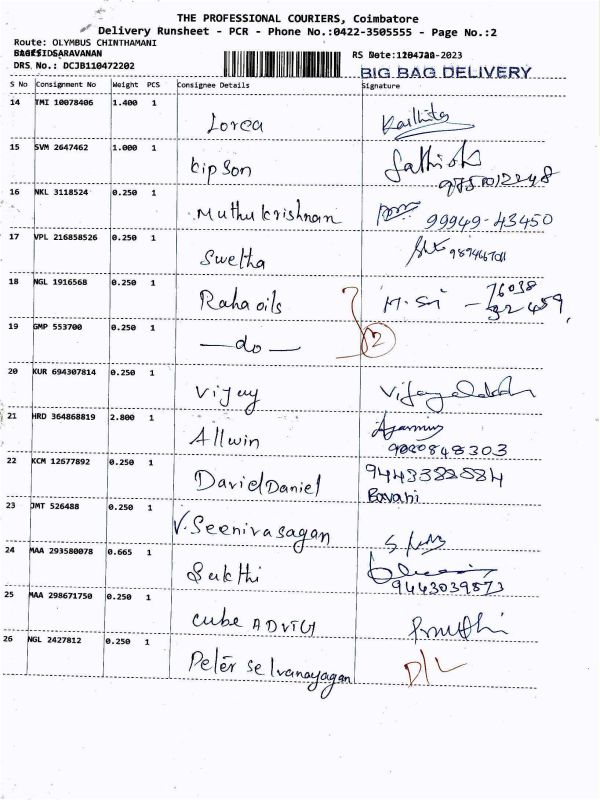 THE PROFESSIONAL COURIERS, Coimbatore
Delivery Runsheet - PCR - Phone No.:0422-3505555 - Page No.:2
Route: OLYMBUS CHINTHAMANI
RS Date:
DRS No.: DCJB110472202
BIG BAG DELIVERY
S No Consignment No Weight PCS Consignee Details Signature
14 TMI 10078406 1.400 1
Lorea
15 SVM 2647462 1.000 1
kip Son Sathish
16 NKL 3118524 0.250 1
Muthukrishnan 99949-43450
17 VPL 216858526 0.250 1
Swetha
18 NGL 1916568 0.250 1
Raha oils M. Sri - 76038
19 GMP 553700 0.250 1
—do— 2
20 KUR 694307814 0.250 1
Vijay
21 HRD 364868819 2.800 1
Allwin
22 KCM 12677892 0.250 1
David Daniel Bavani
23 JMT 526488 0.250 1
V. Seenivasagan
24 MAA 293580078 0.665 1
Sakthi
9443039873
25 MAA 298671750 0.250 1
cube
26 NGL 2427812 0.250 1
Peter selvanayagan D/L